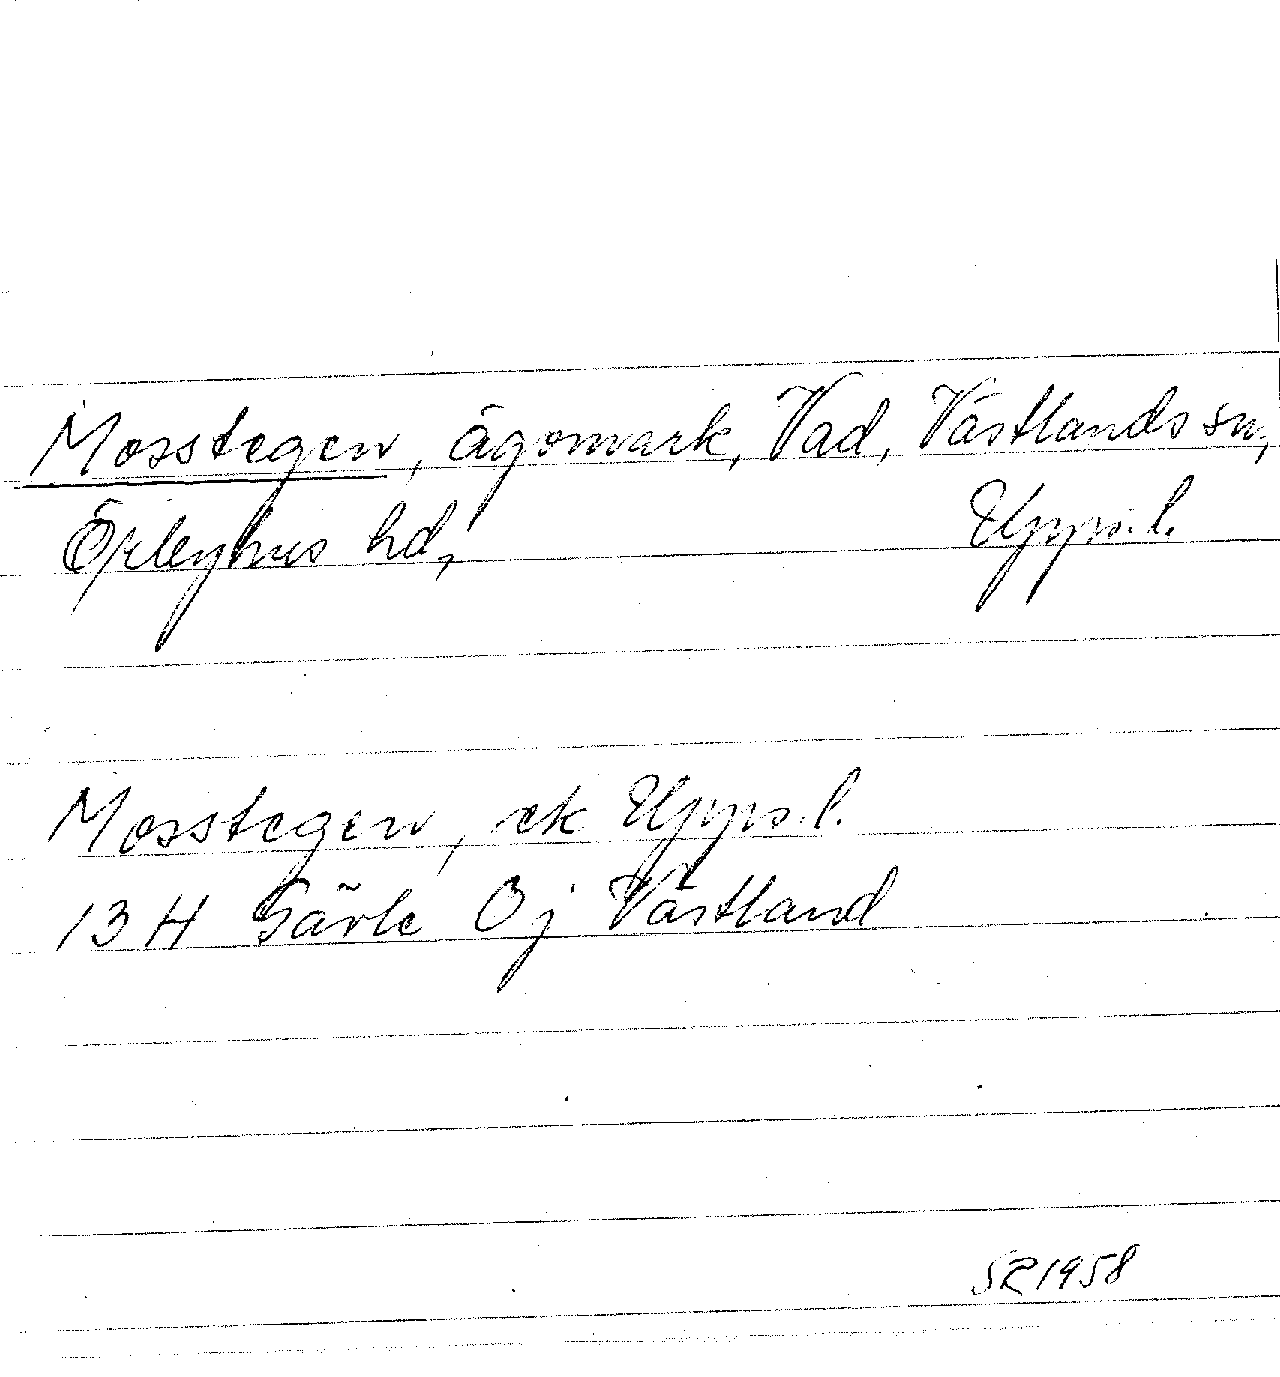 Mosstegen, ägomark, Vad, Västlands sn,
Örbyhus hd, Upps. l.
Mosstegen, ek Upps. l.
13 H Gävle 0 j Västland
SR 1958